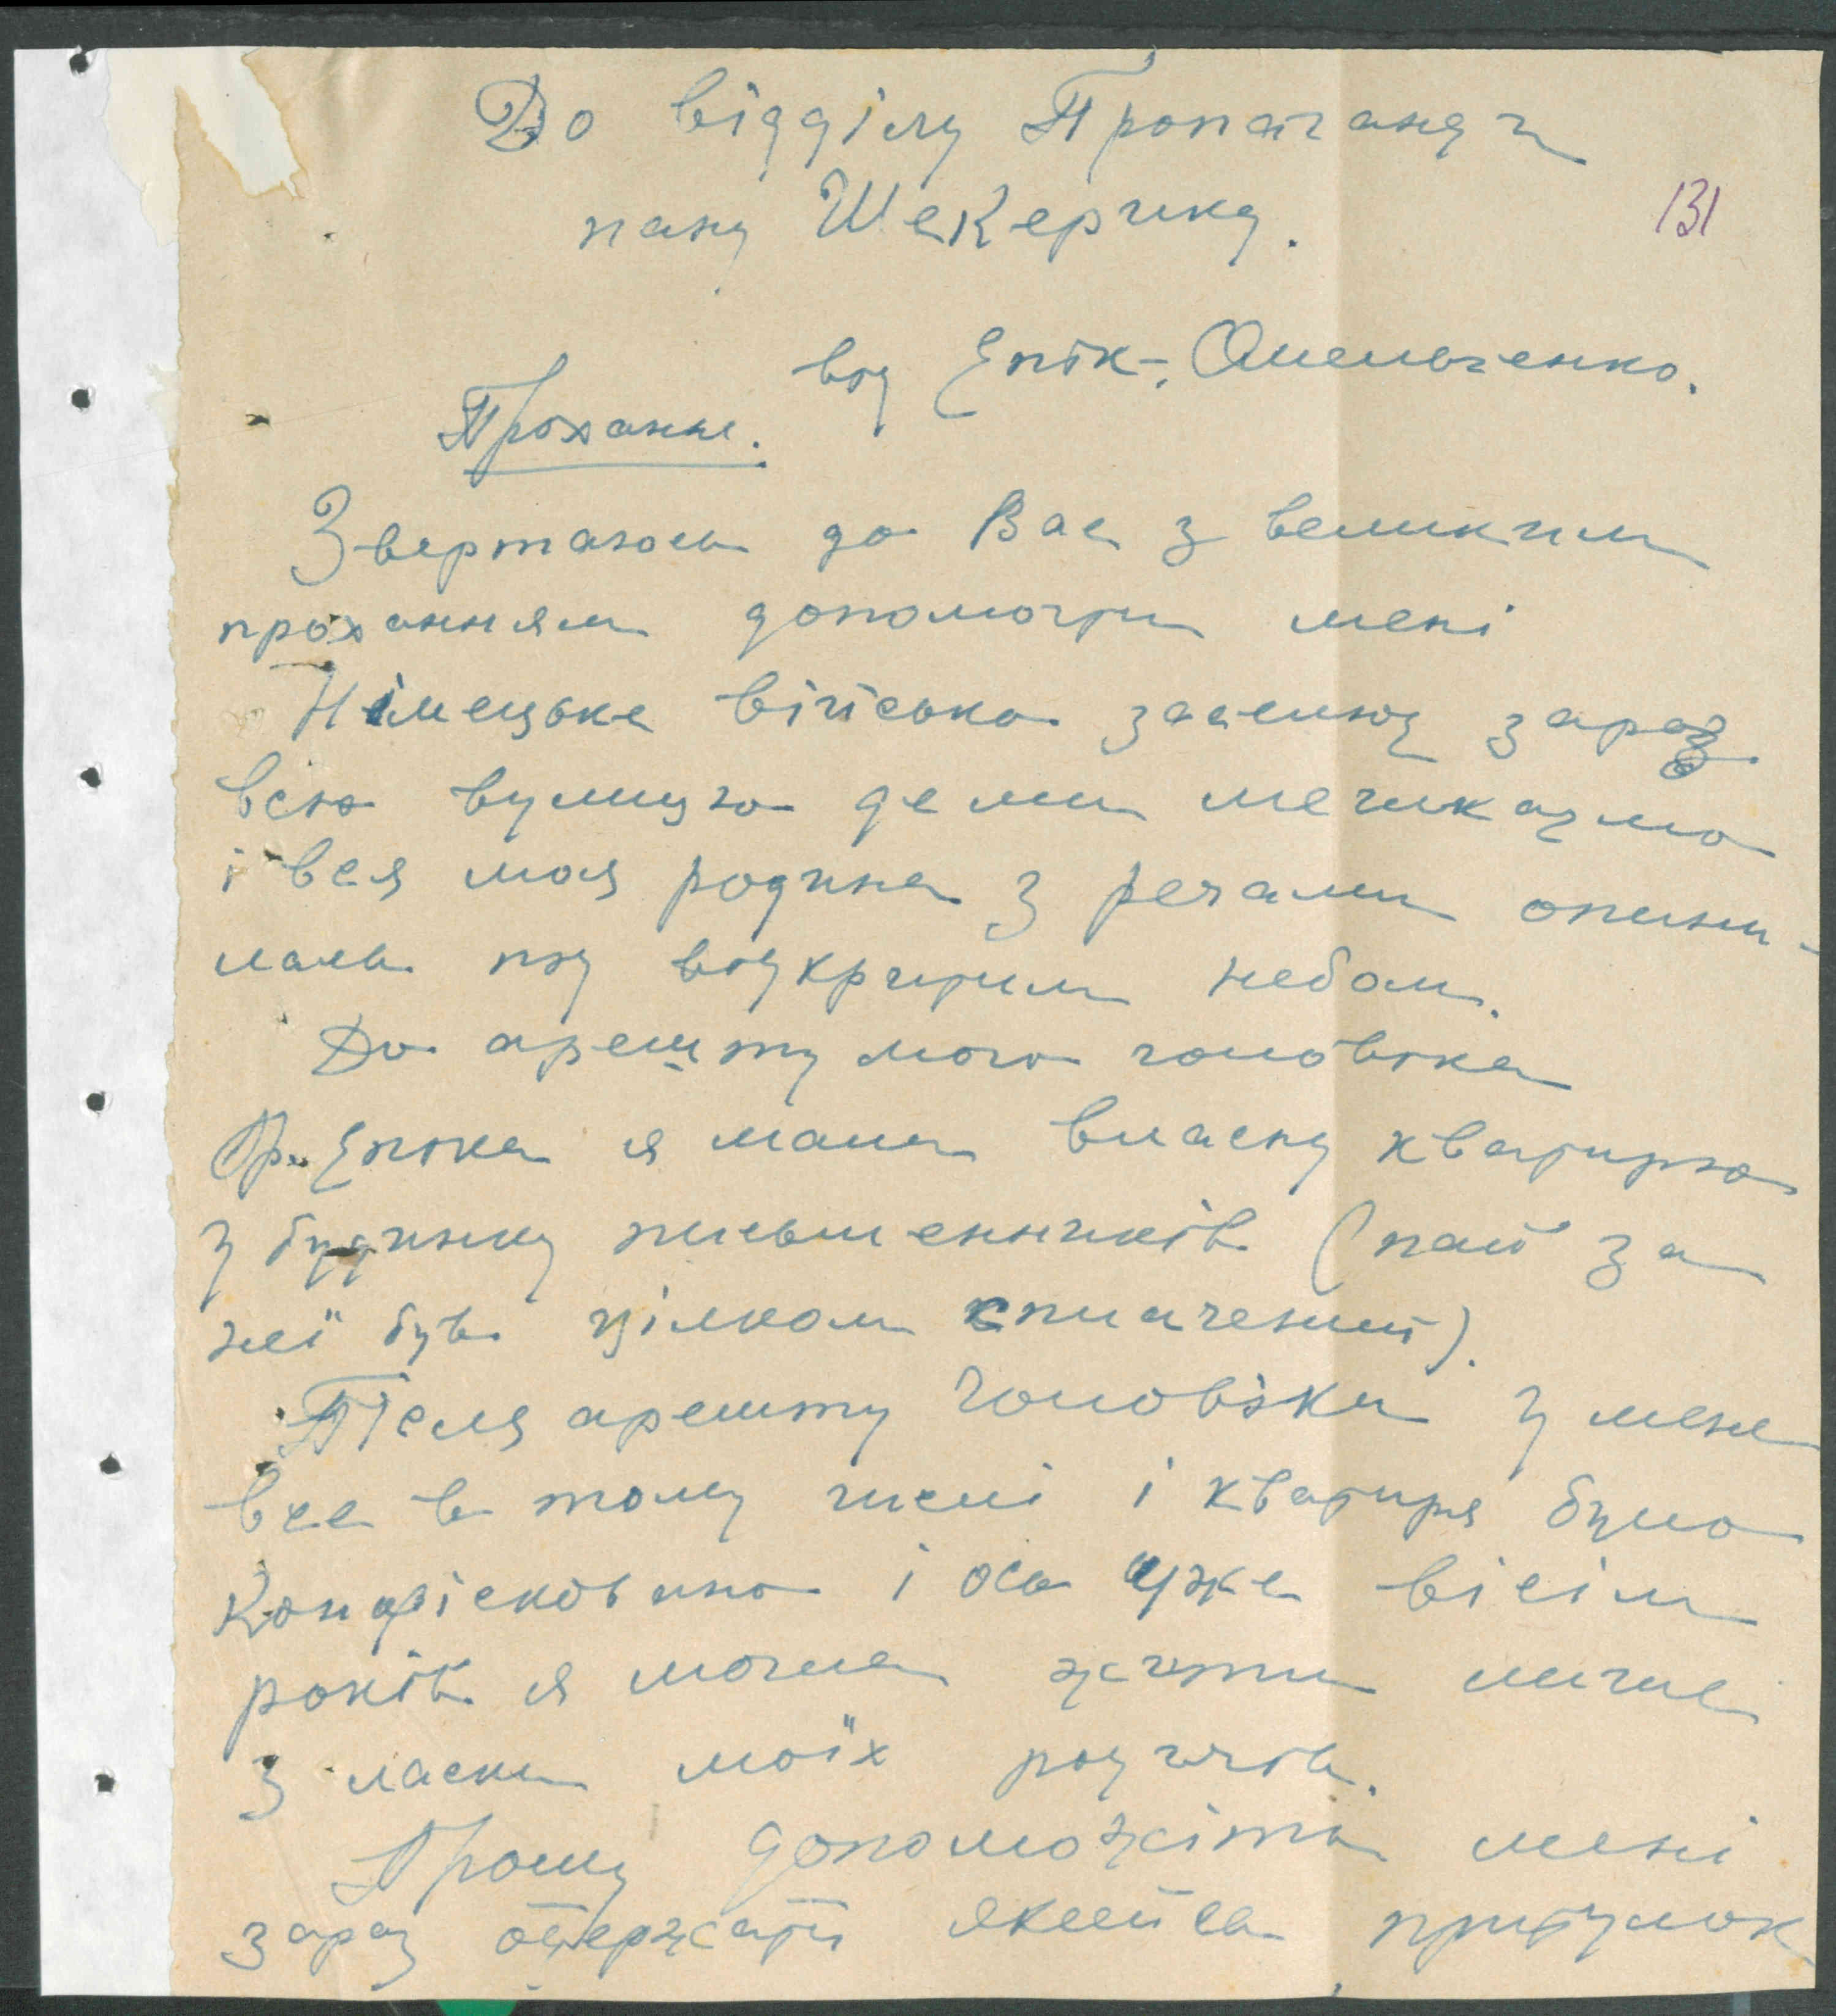 До відділу Пропаганди
пану Шекерику.
131
від Епік-Омельченко.
Прохання.
Звертаюсь до Вас з великим
проханням допомогти мені
Німецьке військо заселює зараз
всю вулицю де ми мешкаємо
і вся моя родина з речами опини-
лась під відкритим небом.
До арешту мого чоловіка
Гр. Епіка я мала власну квартирю
у будинку письменників (пай за
неї був цілком сплачений).
Після арешту чоловіка у мене
все в тому числі і квартиря було
конфісковано і ось уже вісім
років я можу жити лише
з ласки моїх родичів.
Прошу допоможіть мені
зараз одержати якийсь притулок